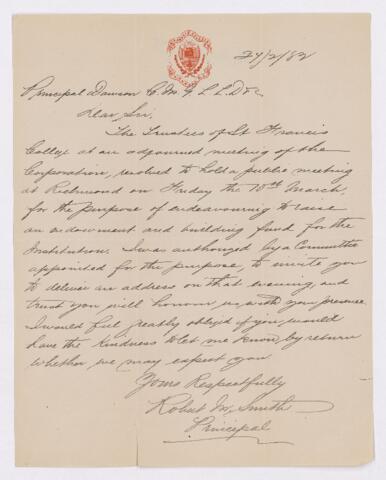 27/2/82
Principal Dawson C. M. G L L D &c
Dear Sir,
The Trustees of St Francis
College at an adjourned meeting of the
Corporation, resolved to hold a public meeting
at Richmond on Friday the 10th March,
for the purpose of endeavouring to raise
an endowment and building fund for the
Institution. I was authorised by a Committee
appointed for the purpose, to invite you
to deliver an address on that evening, and
trust you will honour us with your presence
I would feel greatly obliged if you would
have the kindness to let me know by return
whether we may expect you
Yours Respectfully
Robert M. Smith
Principal